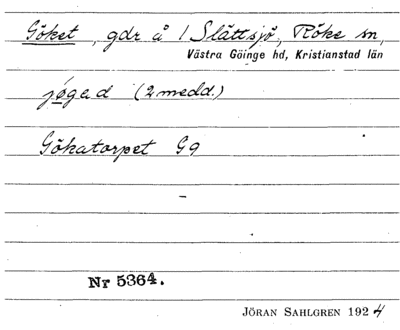 Göket, gdr å 1 Slättsjö, Röke sn,
Västra Göinge hd, Kristianstad län
jø̨gad (2 medd.)
Gökatorpet G9
Nr 5364.
JÖRAN SAHLGREN 1924